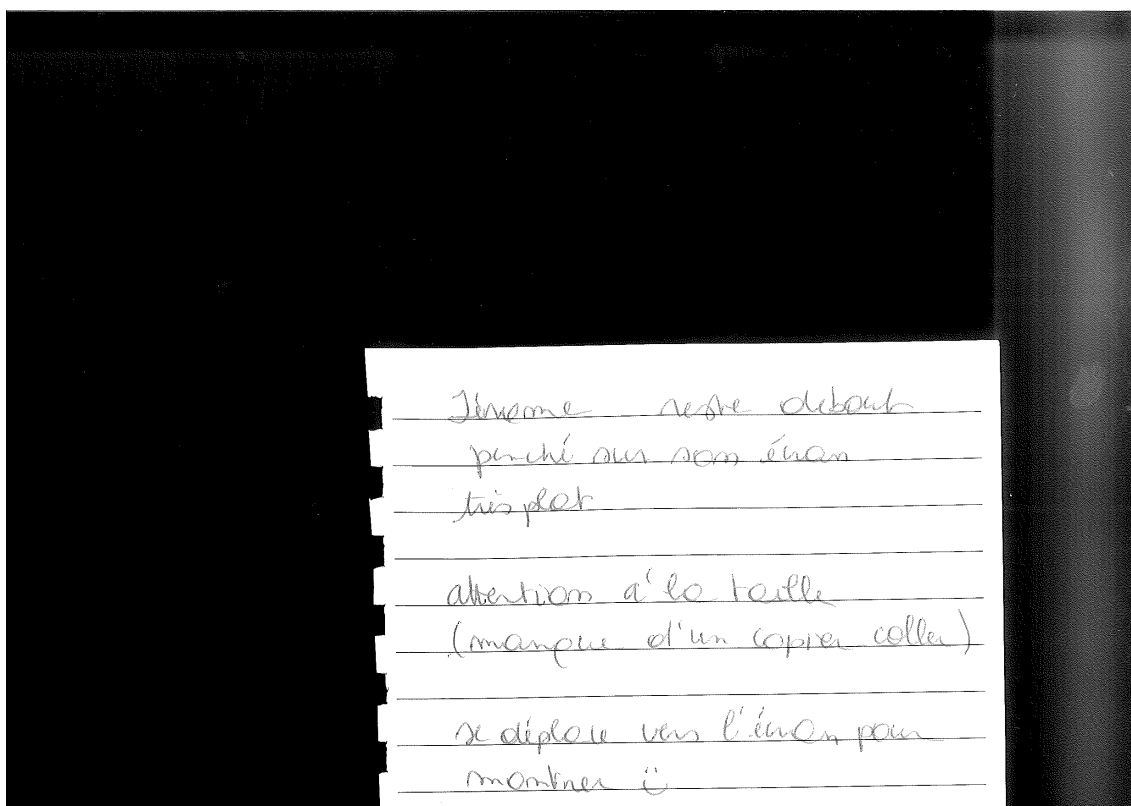 Jérome reste debout
penché sur son écran
très plat
attention a' la taille
(manque d'un copier coller)
se déplace vers l'écran pour
montrer ü